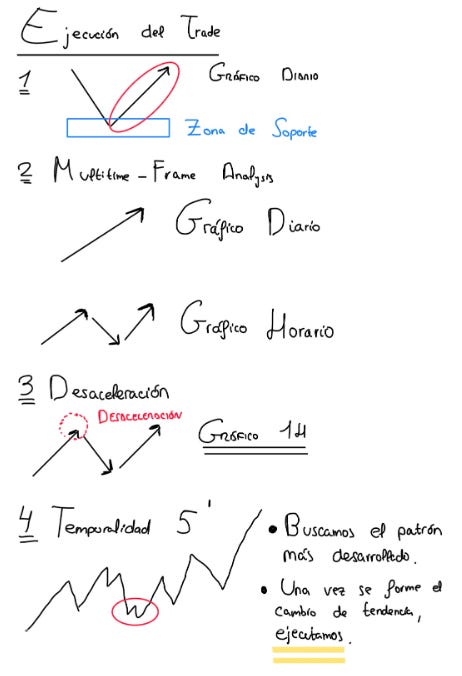 Ejecución del Trade
1
Gráfico Diario
Zona de Soporte
2 Multitime - Frame Analysis
Gráfico Diario
Gráfico Horario
3 Desaceleración
Desaceleración
Gráfico 1H
4 Temporalidad 5'
• Buscamos el patrón
más desarrollado.
• Una vez se forme el
cambio de tendencia,
ejecutamos.